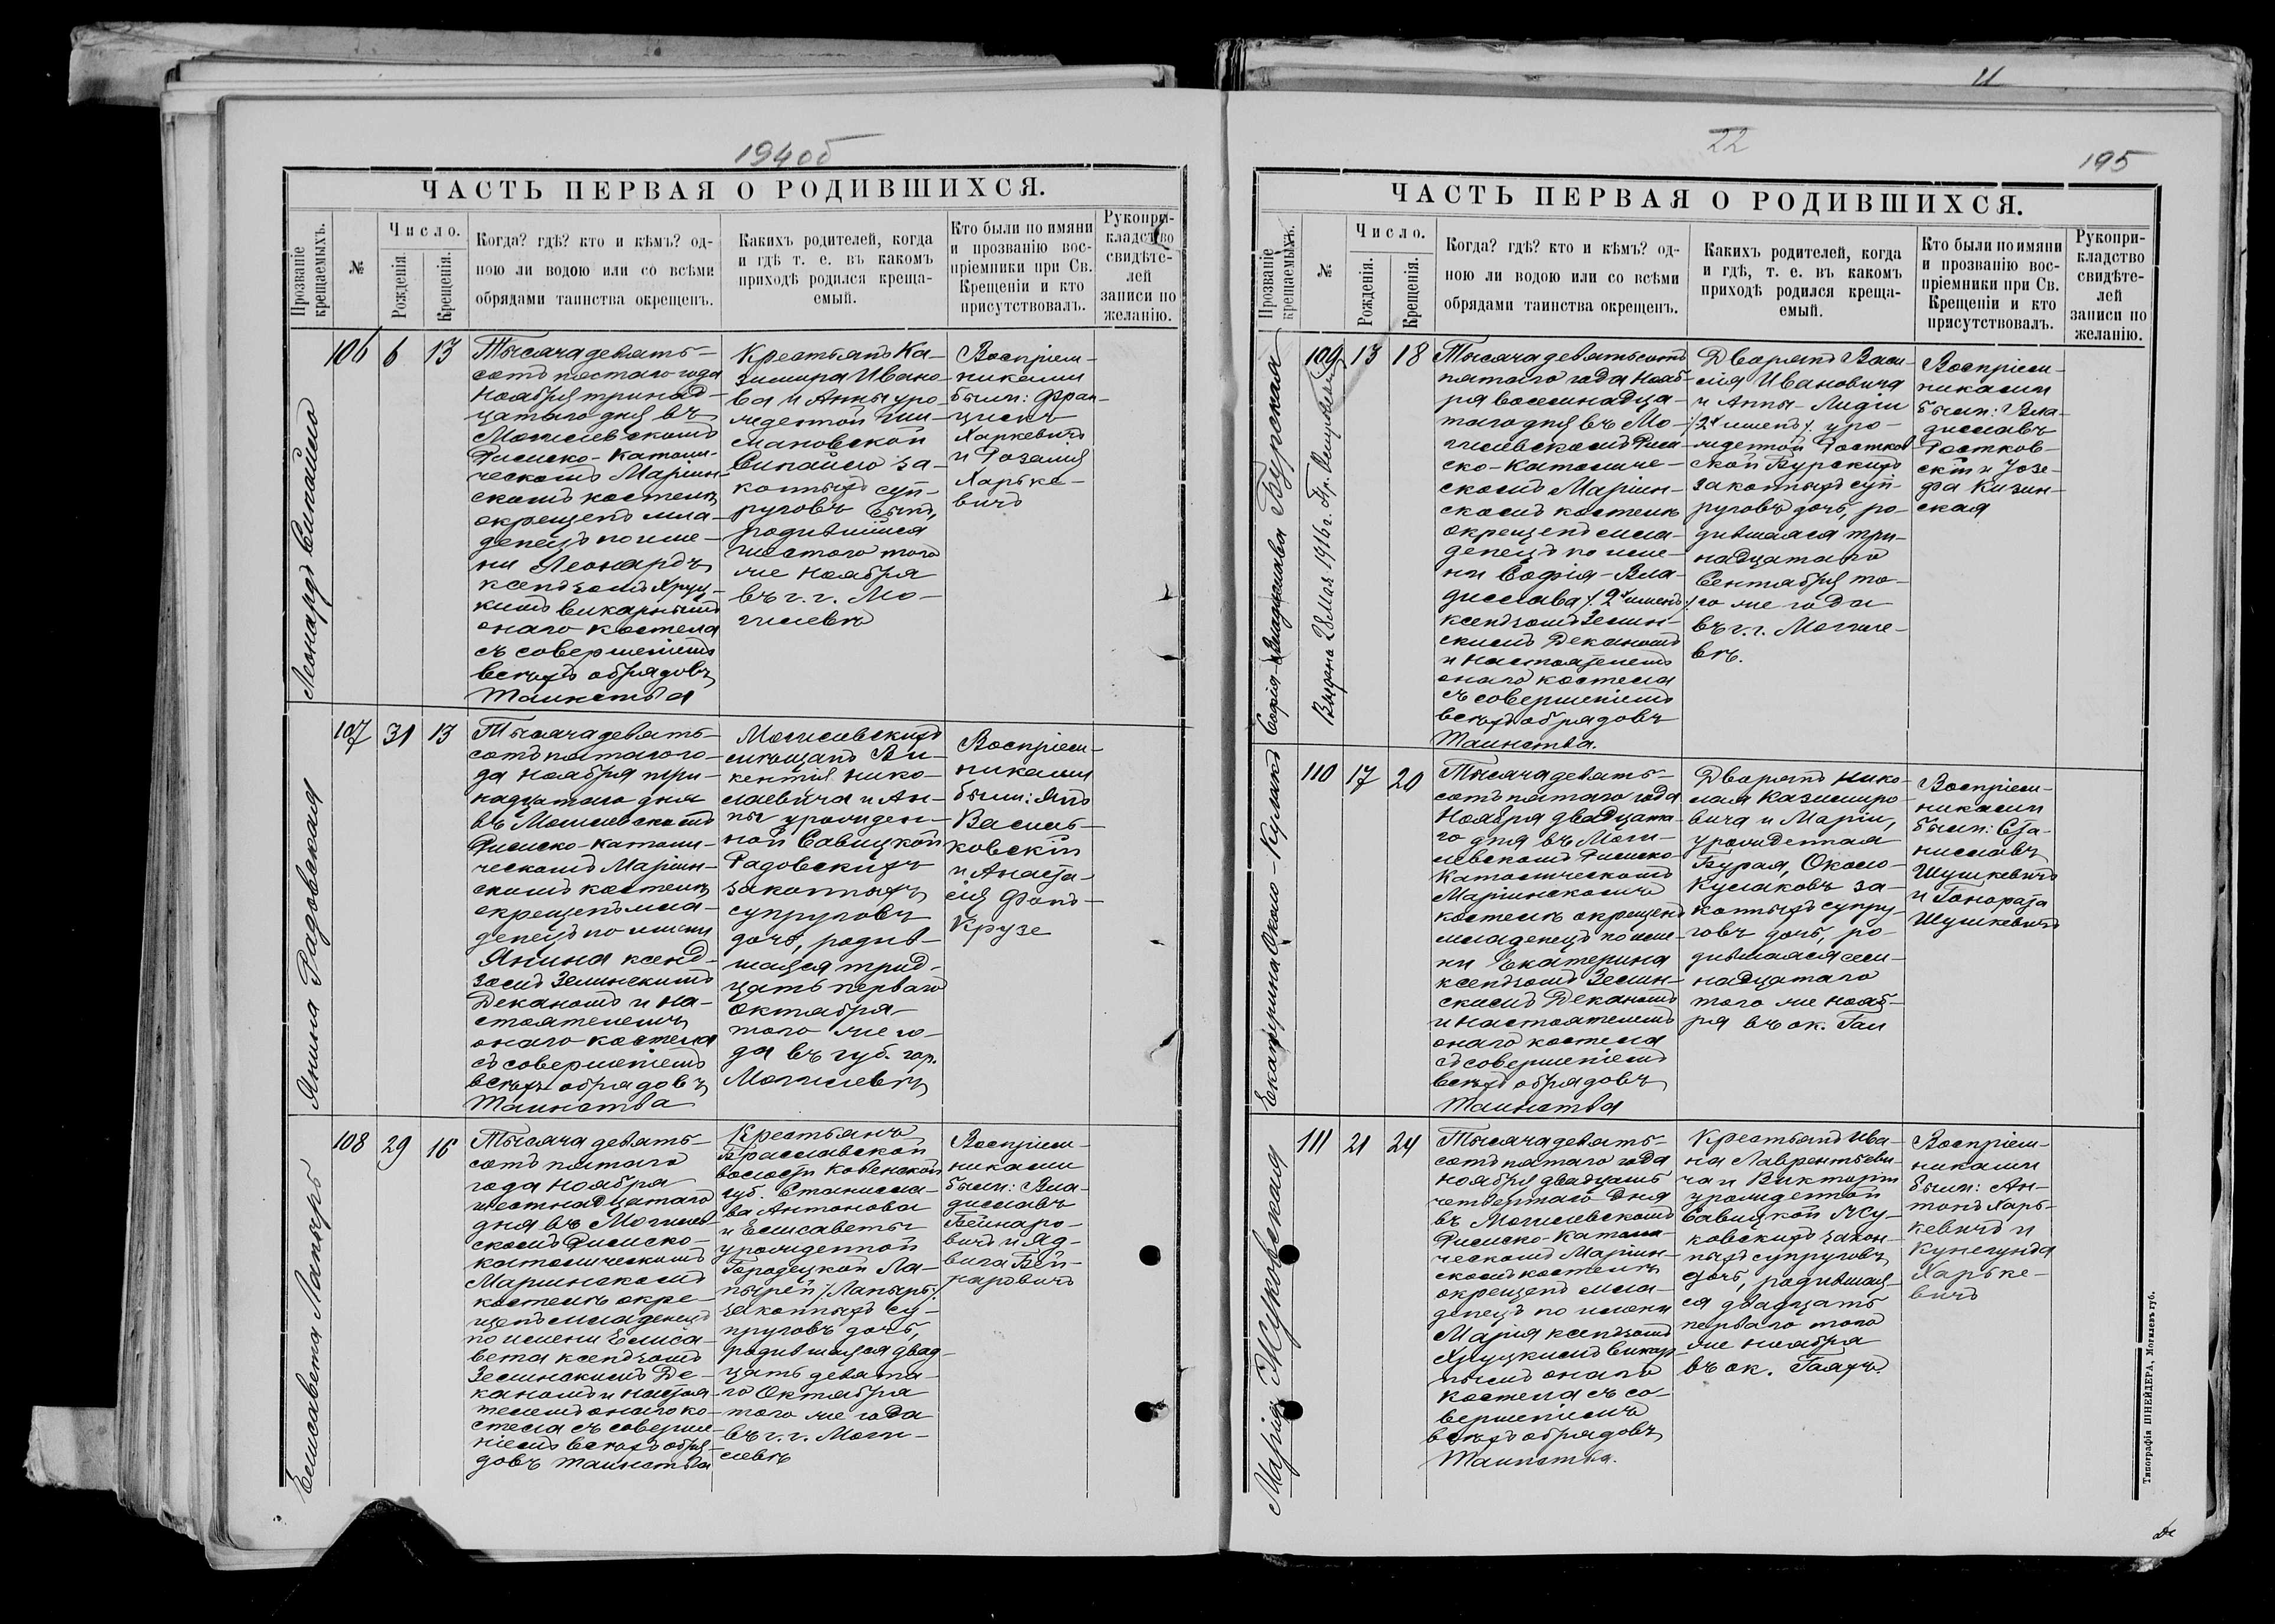 194об
ЧАСТЬ ПЕРВАЯ О РОДИВШИХСЯ.
Прозваніе крещаемыхъ.
№
Число.
Рожденія.
Крещенія.
Когда? гдѣ? кто и кѣмъ? од-
ною ли водою или со всѣми
обрядами таинства окрещенъ.
Какихъ родителей, когда
и гдѣ т. е. въ какомъ
приходѣ родился креща-
емый.
Кто были по имяни
и прозванію вос-
пріемники при Св.
Крещеніи и кто
присутствовалъ.
Рукопри-
кладство
свидѣте-
лей
записи по
желанію.
Леонардъ Сипайло
106
6
13
Тысяча девять-
сотъ пятаго года
Ноября тринад-
цатаго дня въ
Могилевскомъ
Римско-Католи-
ческомъ Маріин-
скомъ костелѣ
окрещенъ мла-
денецъ по име-
ни Леонардъ
ксендзомъ Хруц-
кимъ Викарнымъ
онаго костела
съ совершеніемъ
всѣхъ обрядовъ
Таинства
Крестьянъ Ка-
зимира Ивано-
ва и Анны уро-
жденной
Сипайло за-
конныхъ суп-
руговъ сынъ,
родившійся
шестого того
же Ноября
въ г. г. Мо-
гилевѣ
Воспріем-
никами
были: Фран-
цискъ
Харкевичъ
и Розалія
Харьке-
вичъ
Янина Радовская
107
31
13
Тысяча девять-
сотъ пятаго го-
да Ноября три-
надцатаго дня
въ Могилевскомъ
Римско-Католи-
ческомъ Маріин-
скомъ костелѣ
окрещенъ мла-
денецъ по имени
Янина ксенд-
зомъ Зелинскимъ
Деканомъ и На-
стоятелемъ
онаго костела
съ совершеніемъ
всѣхъ обрядовъ
Таинства
Могилевскихъ
мѣщанъ Ви-
кентія Нико-
лаевича и Ан-
ны урожден-
ной Савицкой
Радовскихъ
законныхъ
супруговъ
дочь, родив-
шаяся трид-
цать перваго
Октября
того же го-
да въ губ. гор.
Могилевѣ
Воспріем-
никами
были: Янъ
Василь-
ковскій
и Анаста-
сія Фонъ-
Крузе
Елисавета Лапырь
108
29
16
Тысяча девять-
сотъ пятаго
года Ноября
шестнадцатаго
дня въ Могилев-
скомъ Римско-
Католическомъ
Маріинскомъ
костелѣ окре-
щенъ младенецъ
по имени Елиса-
вета ксендзомъ
Зелинскимъ Де-
каномъ и настоя-
телемъ онаго ко-
стела съ соверше-
ніемъ всѣхъ обря-
довъ Таинства
Крестьянъ
Браславской
волости Ковенской
губ. Станисла-
ва Антонова
и Елисаветы
урожденной
Городецкой Ла-
пырей /:Лапырь:/
законныхъ су-
пруговъ дочь,
родившаяся двад-
цать девята-
го Октября
того же года
въ г. г. Моги-
левѣ
Воспріем-
никами
были: Вла-
диславъ
Бейнаро-
вичъ и Яд-
вига Бей-
наровичъ
22
195
ЧАСТЬ ПЕРВАЯ О РОДИВШИХСЯ.
Прозваніе крещаемыхъ.
№
Число.
Рожденія.
Крещенія.
Когда? гдѣ? кто и кѣмъ? од-
ною ли водою или со всѣми
обрядами таинства окрещенъ.
Какихъ родителей, когда
и гдѣ, т. е. въ какомъ
приходѣ родился креща-
емый.
Кто были по имяни
и прозванію вос-
пріемники при Св.
Крещеніи и кто
присутствовалъ.
Рукопри-
кладство
свидѣте-
лей
записи по
желанію.
Софія-Владислава Бурская
Выдана 28 Мая 1916 г.
109
13
18
Тысяча девятьсотъ
пятаго года Нояб-
ря восемнадца-
таго дня въ Мо-
гилевскомъ Рим-
ско-Католиче-
скомъ Маріин-
скомъ костелѣ
окрещенъ мла-
денецъ по име-
ни Софія-Вла-
дислава /:2ъ именъ:/
ксендзомъ Зелин-
скимъ Деканомъ
и настоятелемъ
онаго костела
съ совершеніемъ
всѣхъ обрядовъ
Таинства.
Дворянъ Васи-
лія Ивановича
и Анны-Лидіи
/:2ъ именъ:/ уро-
жденной Ростков-
ской Бурскихъ
законныхъ суп-
руговъ дочь, ро-
дившаяся три-
надцатаго
Сентября то-
го же года
въ г. г. Могиле-
вѣ.
Воспріем-
никами
были: Вла-
диславъ
Ростков-
скій и Юзе-
фа Кизин-
ская
Екатерина Около-Кулакъ
110
17
20
Тысяча девять-
сотъ пятаго года
Ноября двадцата-
го дня въ Моги-
левскомъ Римско-
Католическомъ
Маріинскомъ
костелѣ окрещенъ
младенецъ по име-
ни Екатерина
ксендзомъ Зелин-
скимъ Деканомъ
и настоятелемъ
онаго костела
съ совершеніемъ
всѣхъ обрядовъ
Таинства
Дворянъ Нико-
лая Казимиро-
вича и Маріи,
урожденная
Бурая, Около-
Кулаковъ за-
конныхъ супру-
говъ дочь, ро-
дившаяся сем-
надцатаго
того же Нояб-
ря въ ок. Гаи
Воспріем-
никами
были: Ста-
ниславъ
Шушкевичъ
и Гонората
Шушкевичъ
Марія Жуковская
111
21
24
Тысяча девять-
сотъ пятаго года
Ноября двадцать
четвертаго дня
въ Могилевскомъ
Римско-Католи-
ческомъ Маріин-
скомъ костелѣ
окрещенъ мла-
денецъ по имени
Марія ксендзомъ
Хруцкимъ Викар-
нымъ онаго
костела съ со-
вершеніемъ
всѣхъ обрядовъ
Таинства.
Крестьянъ Ива-
на Лаврентьеви-
ча и Викторіи
урожденной
Савицкой Жу-
ковскихъ закон-
ныхъ супруговъ
дочь, родившая-
ся двадцать
перваго того
же Ноября
въ ок. Гаяхъ.
Воспріем-
никами
были: Ан-
тонъ Харь-
кевичъ и
Кунегунда
Харьке-
вичъ
Типографія ШНЕЙДЕРА, Могилевъ губ.